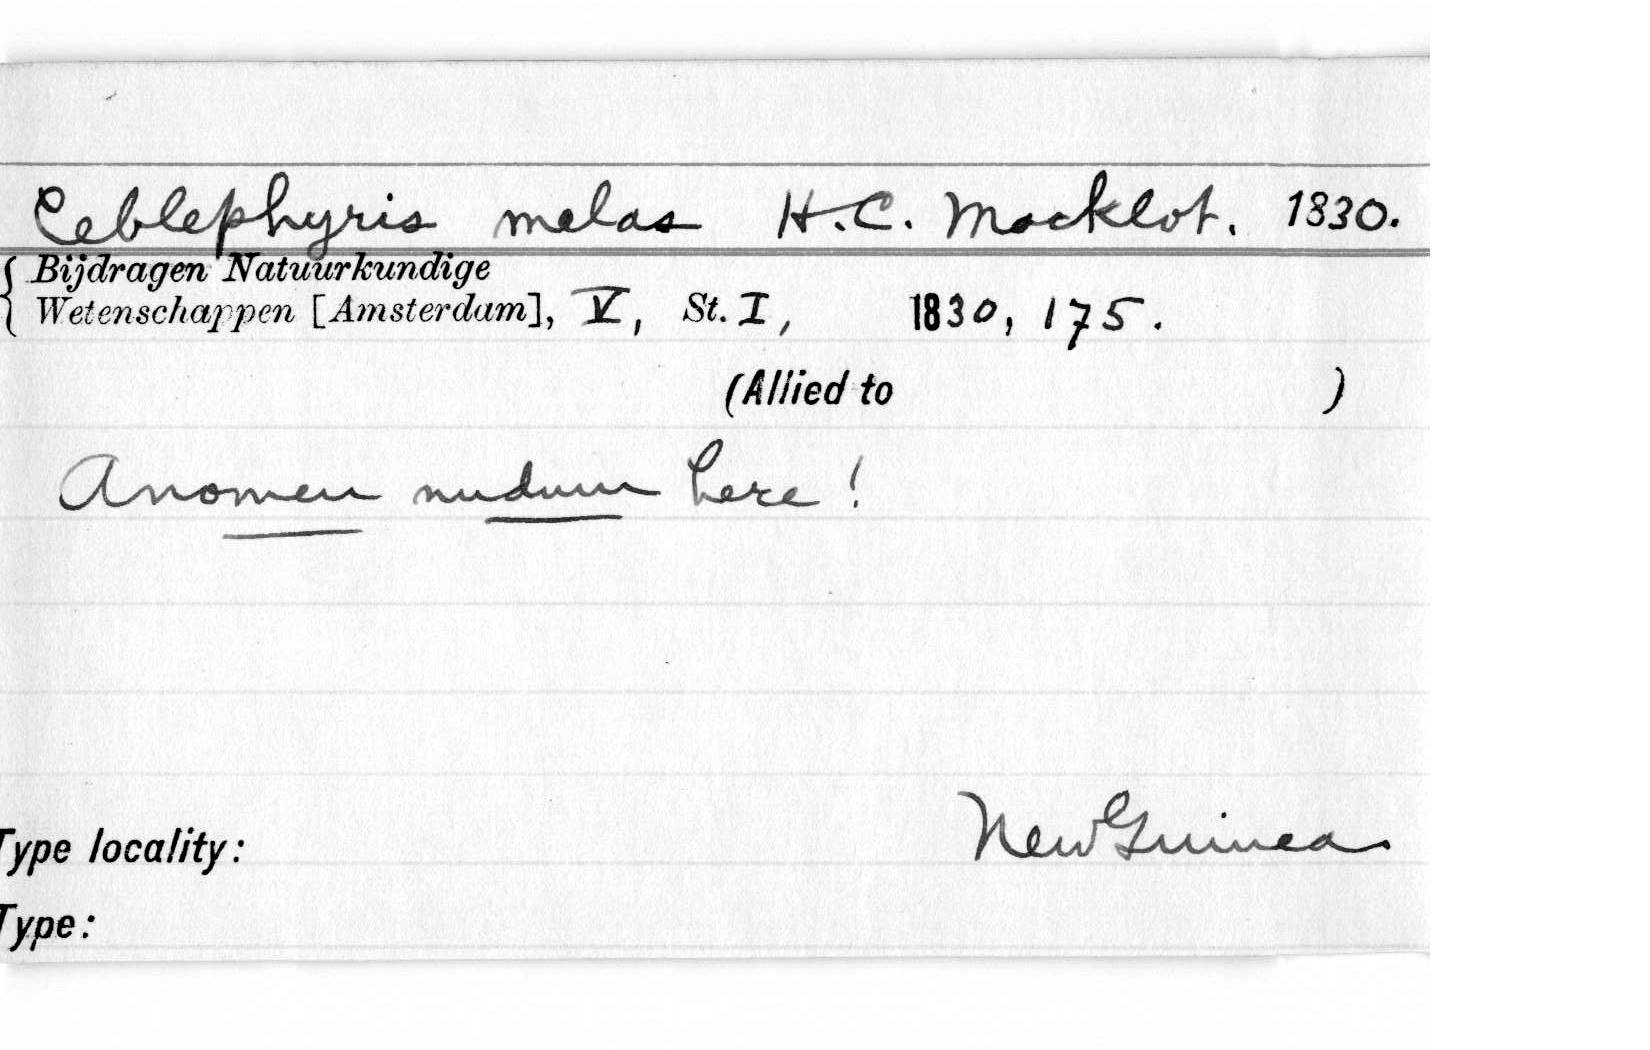 Ceblephyris melas H.C. Macklot. 1830.
Bijdragen Natuurkundige
Wetenschappen [Amsterdam], V, St. I, 1830, 175.
(Allied to )
A nomen nudum here!
Type locality: New Guinea
Type: